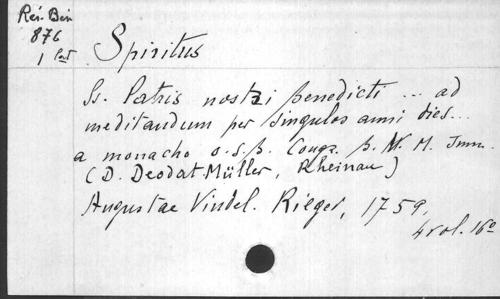 Rés. Bén
876
1 Port
Spiritus
Ss. Patris nostri Benedicti ... ad
meditandum per singulos anni dies...
a monacho o.s.B. Congr. B. V. M. Imm.
(D. Deodat Müller, Rheinau)
Augustae Vindel. Rieger, 1759,
4 vol. 16°